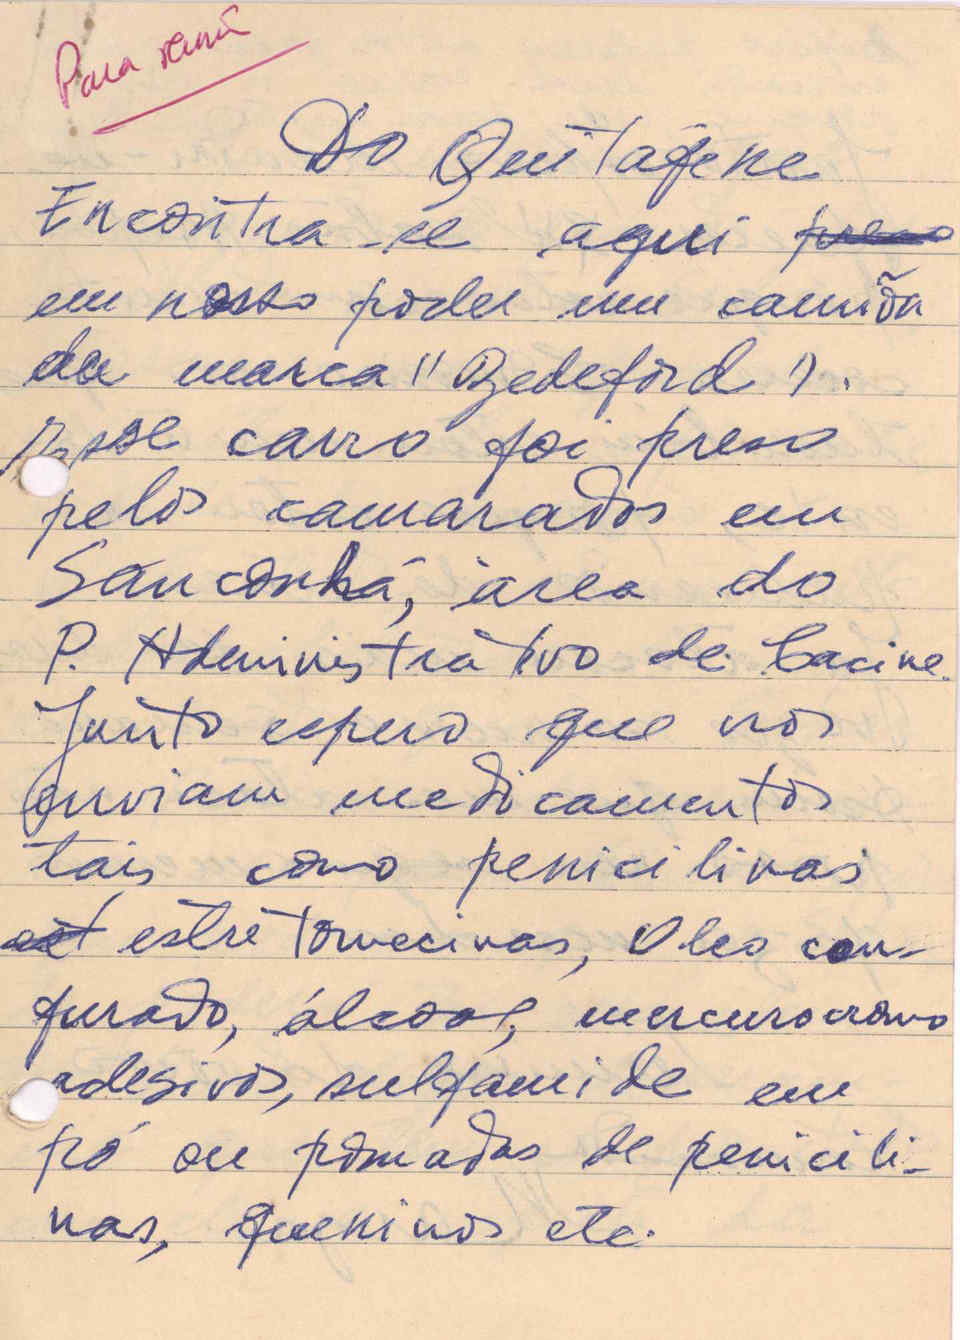 Para
Do Quitafene
Encontra-se aqui preso
em nosso poder um camión
da marca "Bedeford".
Esse carro foi preso
pelos camarados em
Sanconhá, área do
P. Administrativo de Cacine.
Junto espero que nos
enviam medicamentos
tais como penicilinas
est estretomecinas, Oleo can-
furado, álcool, mercurocromo
adesivos, sulfamide em
pó ou pomadas de penicili-
nas, queninos etc.